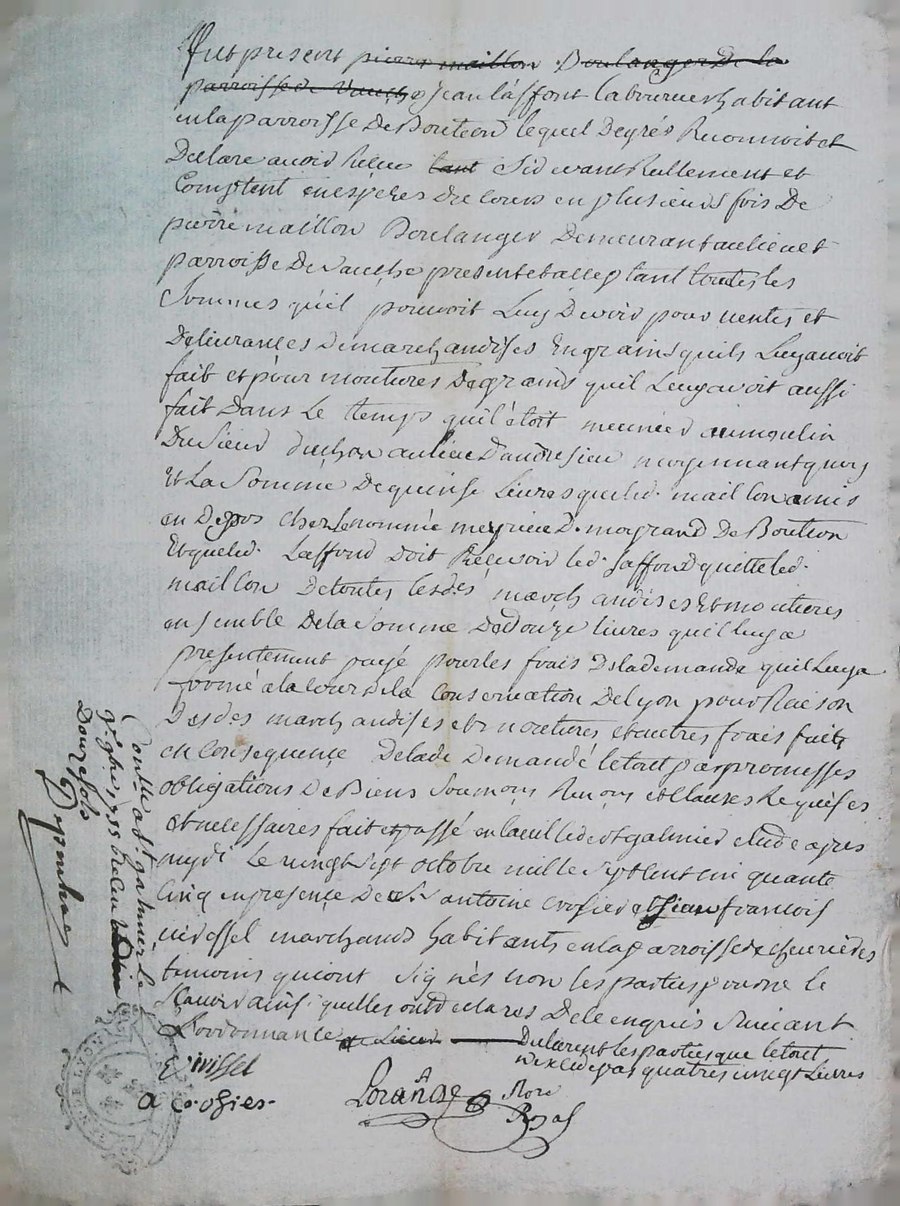 Fut present pierre maillon Boulanger De la
parroisse de Vauche Jean laffont laboureur habitant
en la parroisse De Bouteon lequel De gres Reconnoit et
Declare avoir Receu tant Sidevant Reellement et
Comptent en espeses Du cours en plusieurs fois De
pierre maillon Boulanger Demeurant au lieu et
parroisse De Vauche present et acceptant toutes les
Sommes qu'il pouvoit Luy Devoir pour ventes et
Delivrances De marchandises En grains quils Luy avoit
fait et pour moutures De grains quil Luy avoit aussi
fait Dans Le temps quil étoit meunier au moulin
Du Sieur duchon au lieu D'andresieu moyennant quoy
Et La Somme De quinse Livres que led. maillon a mis
en Depos cher Le nommé D. mogrand De Bouteon
Et que led. Laffond doit Recevoir led. Laffond quitte led.
maillon De toutes lesdes marchandises Et moutures
ensemble De la Somme De Douze livres quil luy a
presentement payé pour les frais De la demande quil Luy a
formé a la Cour de la Conservation De Lyon pour Raison
Desdes marchandises et moutures et autres frais faits
en Consequence De lade Demande le tout par promesses
obligations De Biens Soumons Renons et Clauses Requises
et necessaires fait et passé en la ville de st galmier etude apres
mydi Le vingt Sept octobre mille Sept cent cinquante
Cinq en presence De Sr antoine Crosier et Jean francois
virissel marchands habitants en la parroisse de chevrieres
temoins qui ont Signés non les parties pour ne le
Scavoir ainsi quelles ont declares De ce enquis Suivant
L'ordonnance
Declarent les parties que le tout
n'excede pas quatres vingt Livres
Virissel
A Crosier
Lorange
Nore
Royal
Contllé a St galmier le
9e 9bre 1755 Receu
Douze sols